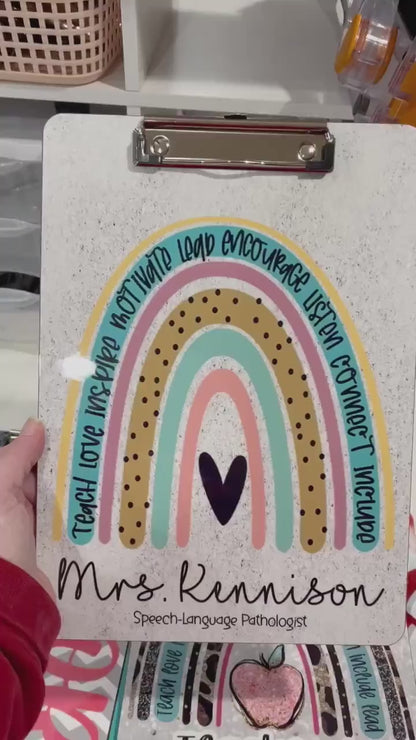 Teach Love Inspire Motivate Lead Encourage Listen Connect Include
Mrs. Kennison
Speech-Language Pathologist
Teach love
include lead